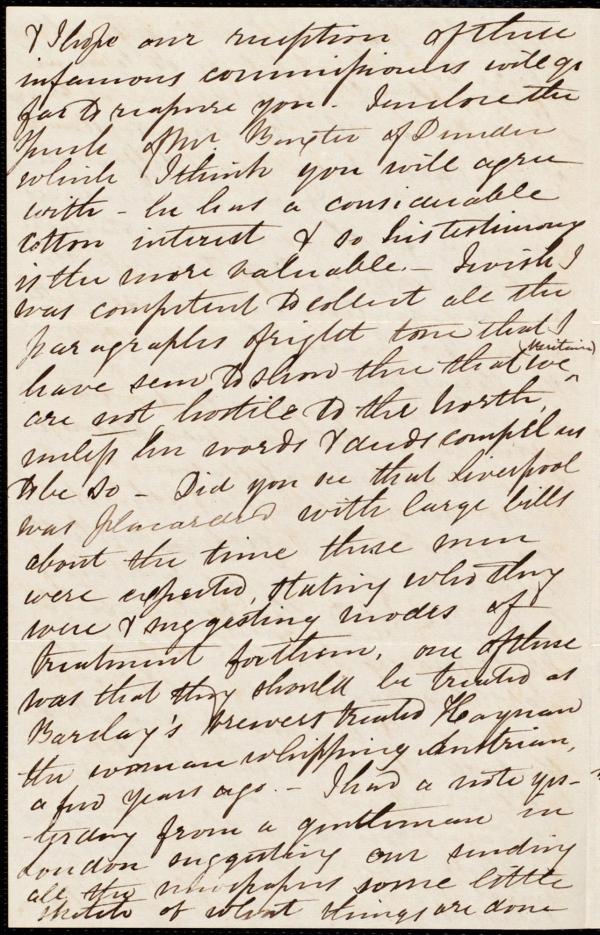 & I hope our reception of these
infamous commissioners will go
far to reassure you. I enclose the
speech of Mr. Baxter of Dundee
which I think you will agree
with - he has a considerable
cotton interest & so his testimony
is the more valuable. - I wish I
was competent to collect all the
paragraphs of right tone that I
have seen to show thee that we (Britains)
are not hostile to the North,
unless her words & deeds compel us
to be so - Did you see that Liverpool
was placarded with large bills
about the time these men
were expected, stating who they
were & suggesting modes of
treatment for them, one of these
was that they should be treated as
Barclay's brewers treated Haynau
the woman whipping Austrian,
a few years ago. - I had a note yes-
-terday from a gentleman in
London suggesting our sending
all the newspapers some little
sketch of what things are done